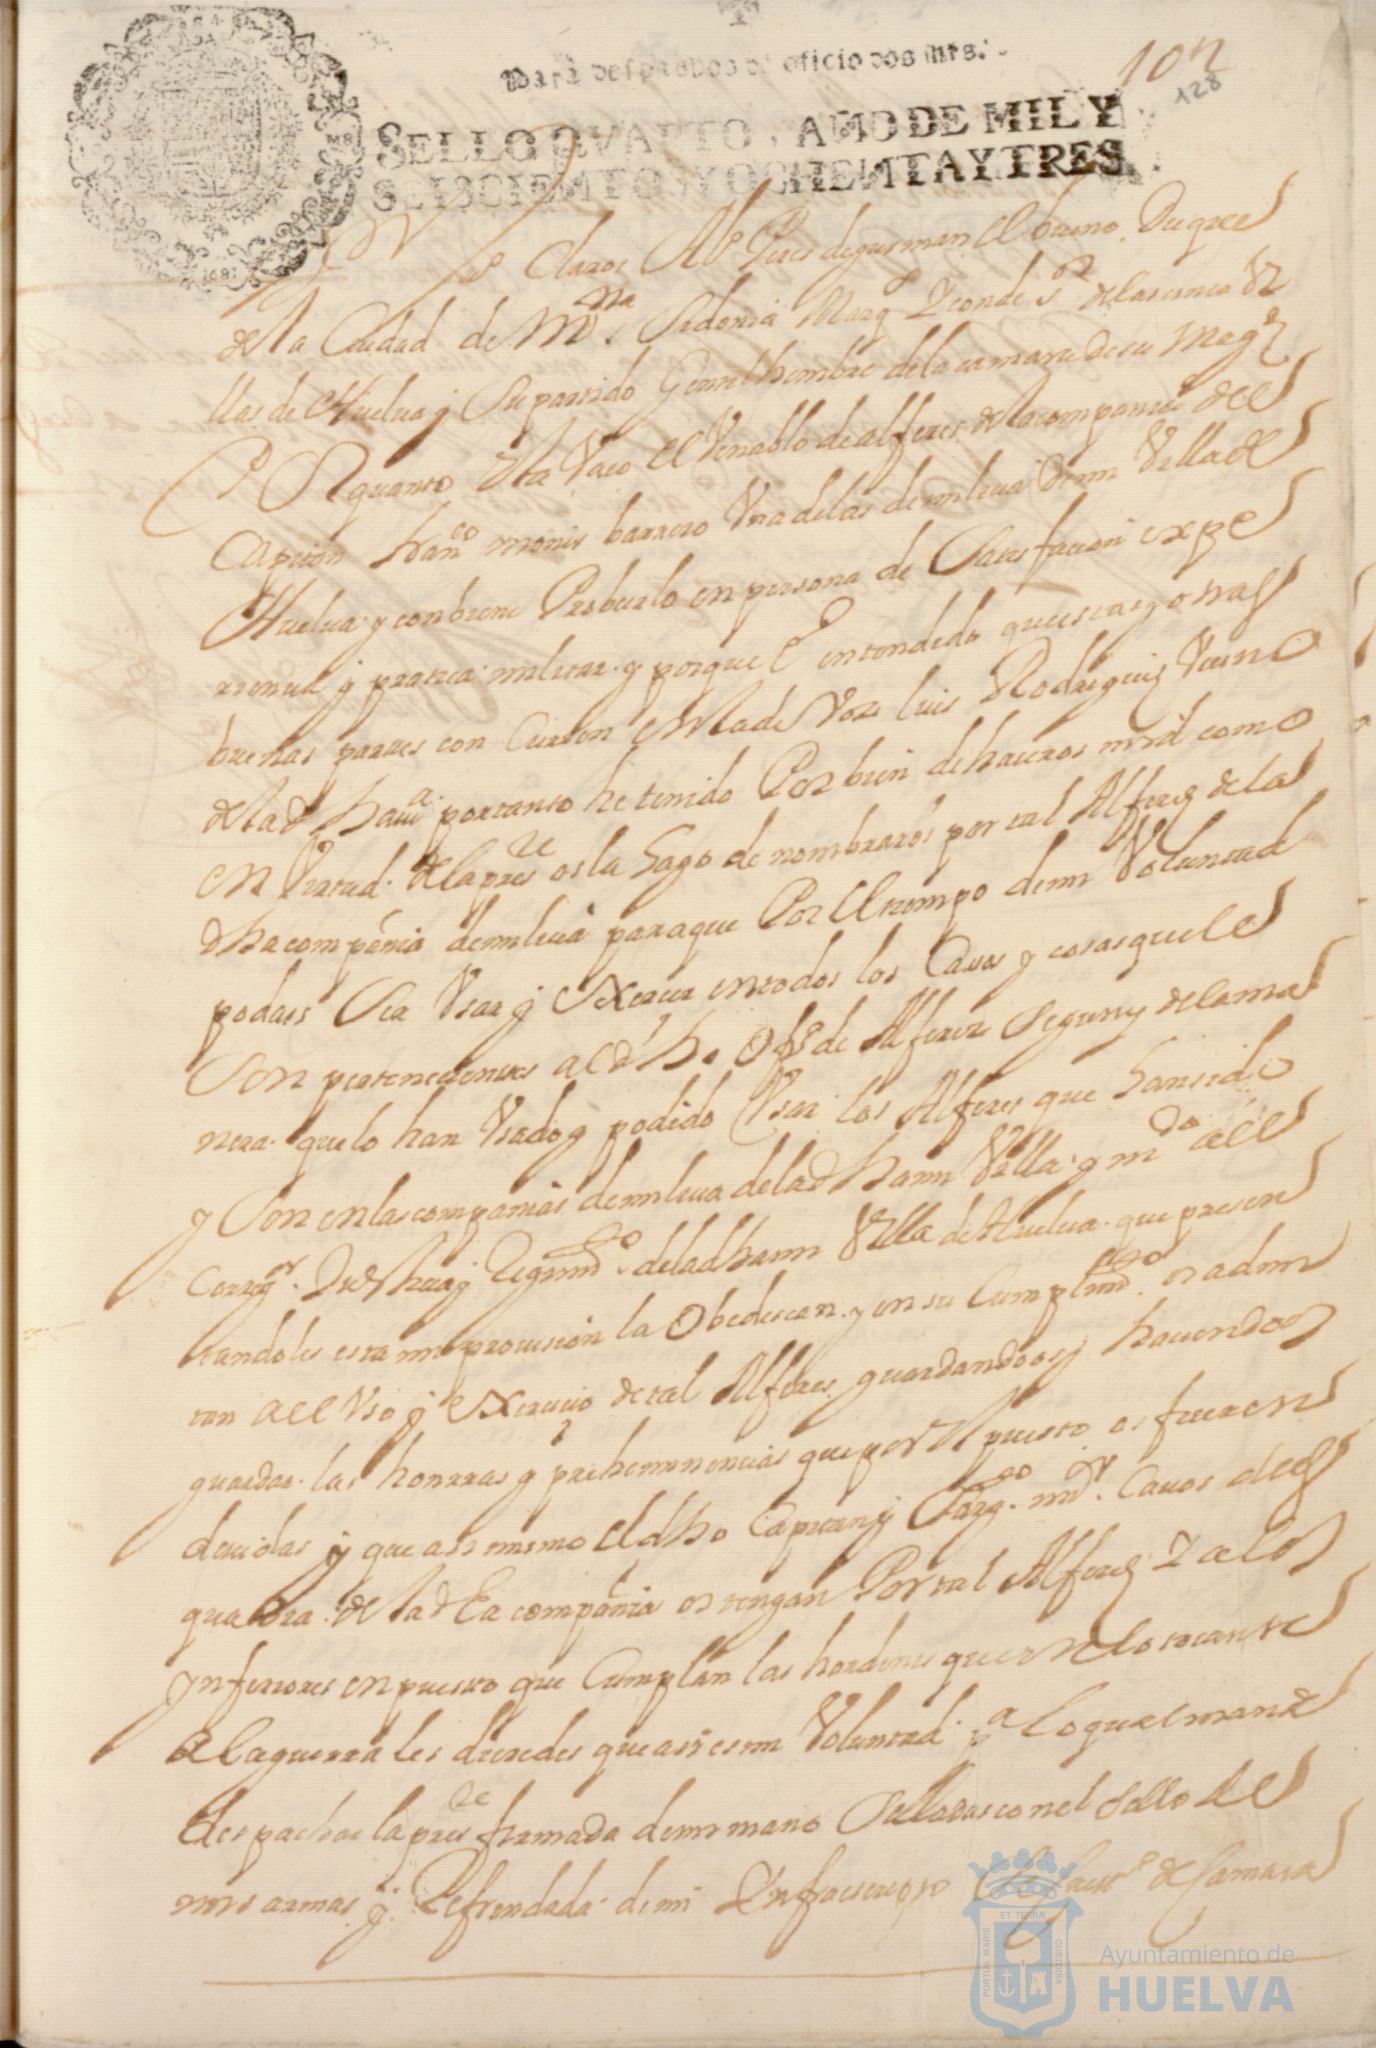 Para despachos de oficio dos mrs.
10n
128
SELLO QVARTO, AÑO DE MIL Y
SEISCIENTOS Y OCHENTA Y TRES
Claros Alº Peres de gusman el bueno. Duque
de la Ciudad de Mna Sidonia Marq Y conde Sor de las cinco Vi
llas de Huelua y Su partido Gentilhombre de la camara de su Magd
POR quanto Esta Vaco el Venablo de alferes de la compania del
Capitan franco monis barrero Vna de las de milicia de mi Villa de
Huelua y conbiene Probeerlo en persona de Satisfacion expe
riencia y pratica militar y porque E entendido que estas y otras
buenas partes con Curren En la de Vos luis Rodriguez Vecino
de la dha Villa por tanto he tenido Por bien de haceros mrd como
en Virtud de la preste os la hago de nombraros por tal Alferez de la
dha compañia de milicia para que Por El tiempo de mi Voluntad
podais Sea Usar y Exercer en todos los Casos y cosas que le
Son pertenecientes al dho ofº de Alferez Segun y de la ma
nera que lo han Usado y podido Usar los Alferes que han sido
y Son en las companias de milicia de la dha mi Villa y mdo al
Corregor Justicia y Regimto de la dha mi Villa de Huelua que presen
tandoles esta mi provision la Obedescan y en su Cumplimto os admi
tan al Uso y Exercicio de tal Alferes guardandoos y haciendoos
guardar las honrras y preheminencias que por tl puesto os fueren
deuidas y que asi mismo El dho Capitan y Sargto mr Cauos de es
quadra de la dha compañia os tengan Por tal Alferez Y a los
ynferiores en puesto que Cumplan las hordenes que en lo tocante
a la guerra les dieredes que asi es mi Voluntad pa lo qual mande
despachar la preste firmada de mi mano Sellada con el Sello de
mis armas y Refrendada de mi Ynfraescripto Secretº de Camara
PORTUS MARIS ET TERRAE CUSTODIA
Ayuntamiento de
HUELVA